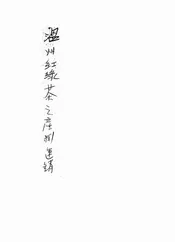 温州紅綠茶之産制運銷